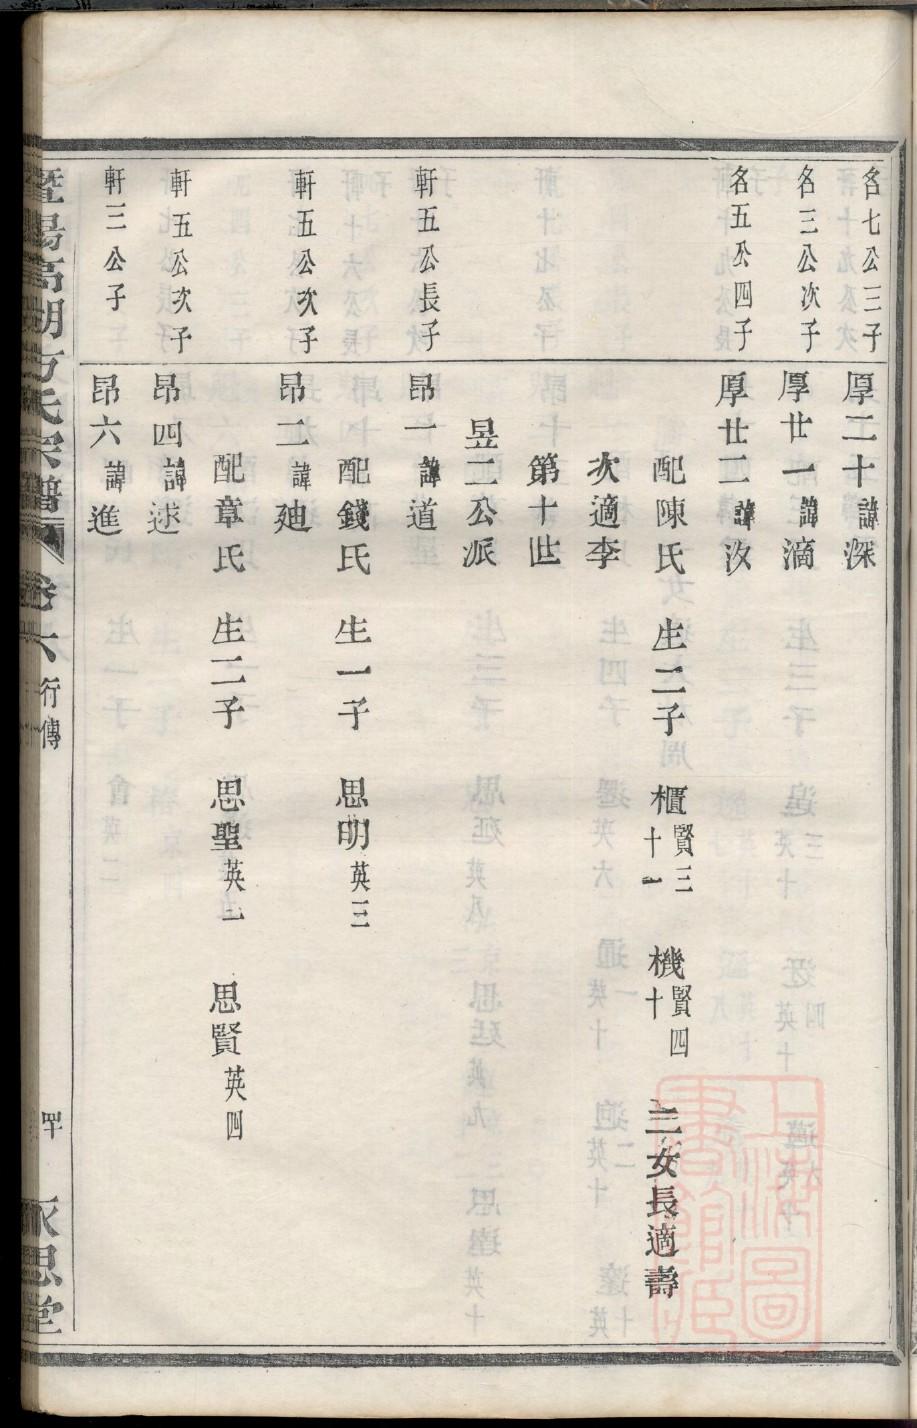 名七公三子
厚二十諱深
名三公次子
厚廿一諱滴
名五公四子
厚廿二諱汝
配陳氏 生二子 櫃賢三十一 機賢四十 二女長適壽
次適李
第十世
昱二公派
軒五公長子
昂一諱道
配錢氏 生一子 思明英三
軒五公次子
昂二諱廸
配章氏 生二子 思聖英二 思賢英四
軒五公次子
昂四諱逑
軒三公子
昂六諱進
暨陽高湖方氏宗譜 卷六 行傳 永思堂